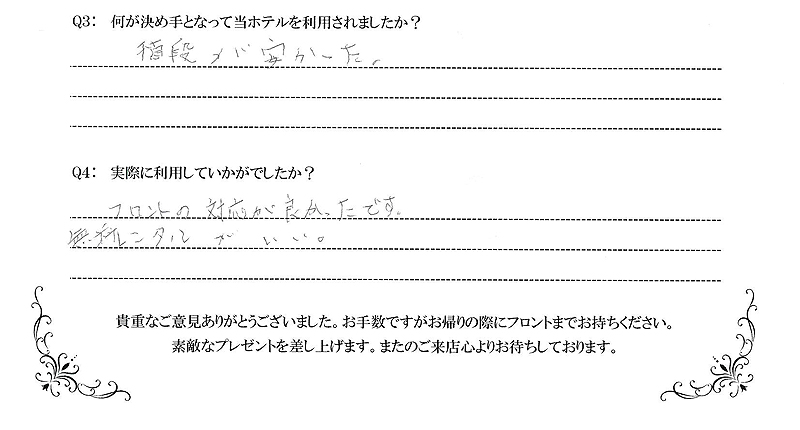 Q3： 何が決め手となって当ホテルを利用されましたか？
値段が安かった。
Q4： 実際に利用していかがでしたか？
フロントの対応が良かったです。
無料レンタルがいい。
貴重なご意見ありがとうございました。お手数ですがお帰りの際にフロントまでお持ちください。
素敵なプレゼントを差し上げます。またのご来店心よりお待ちしております。